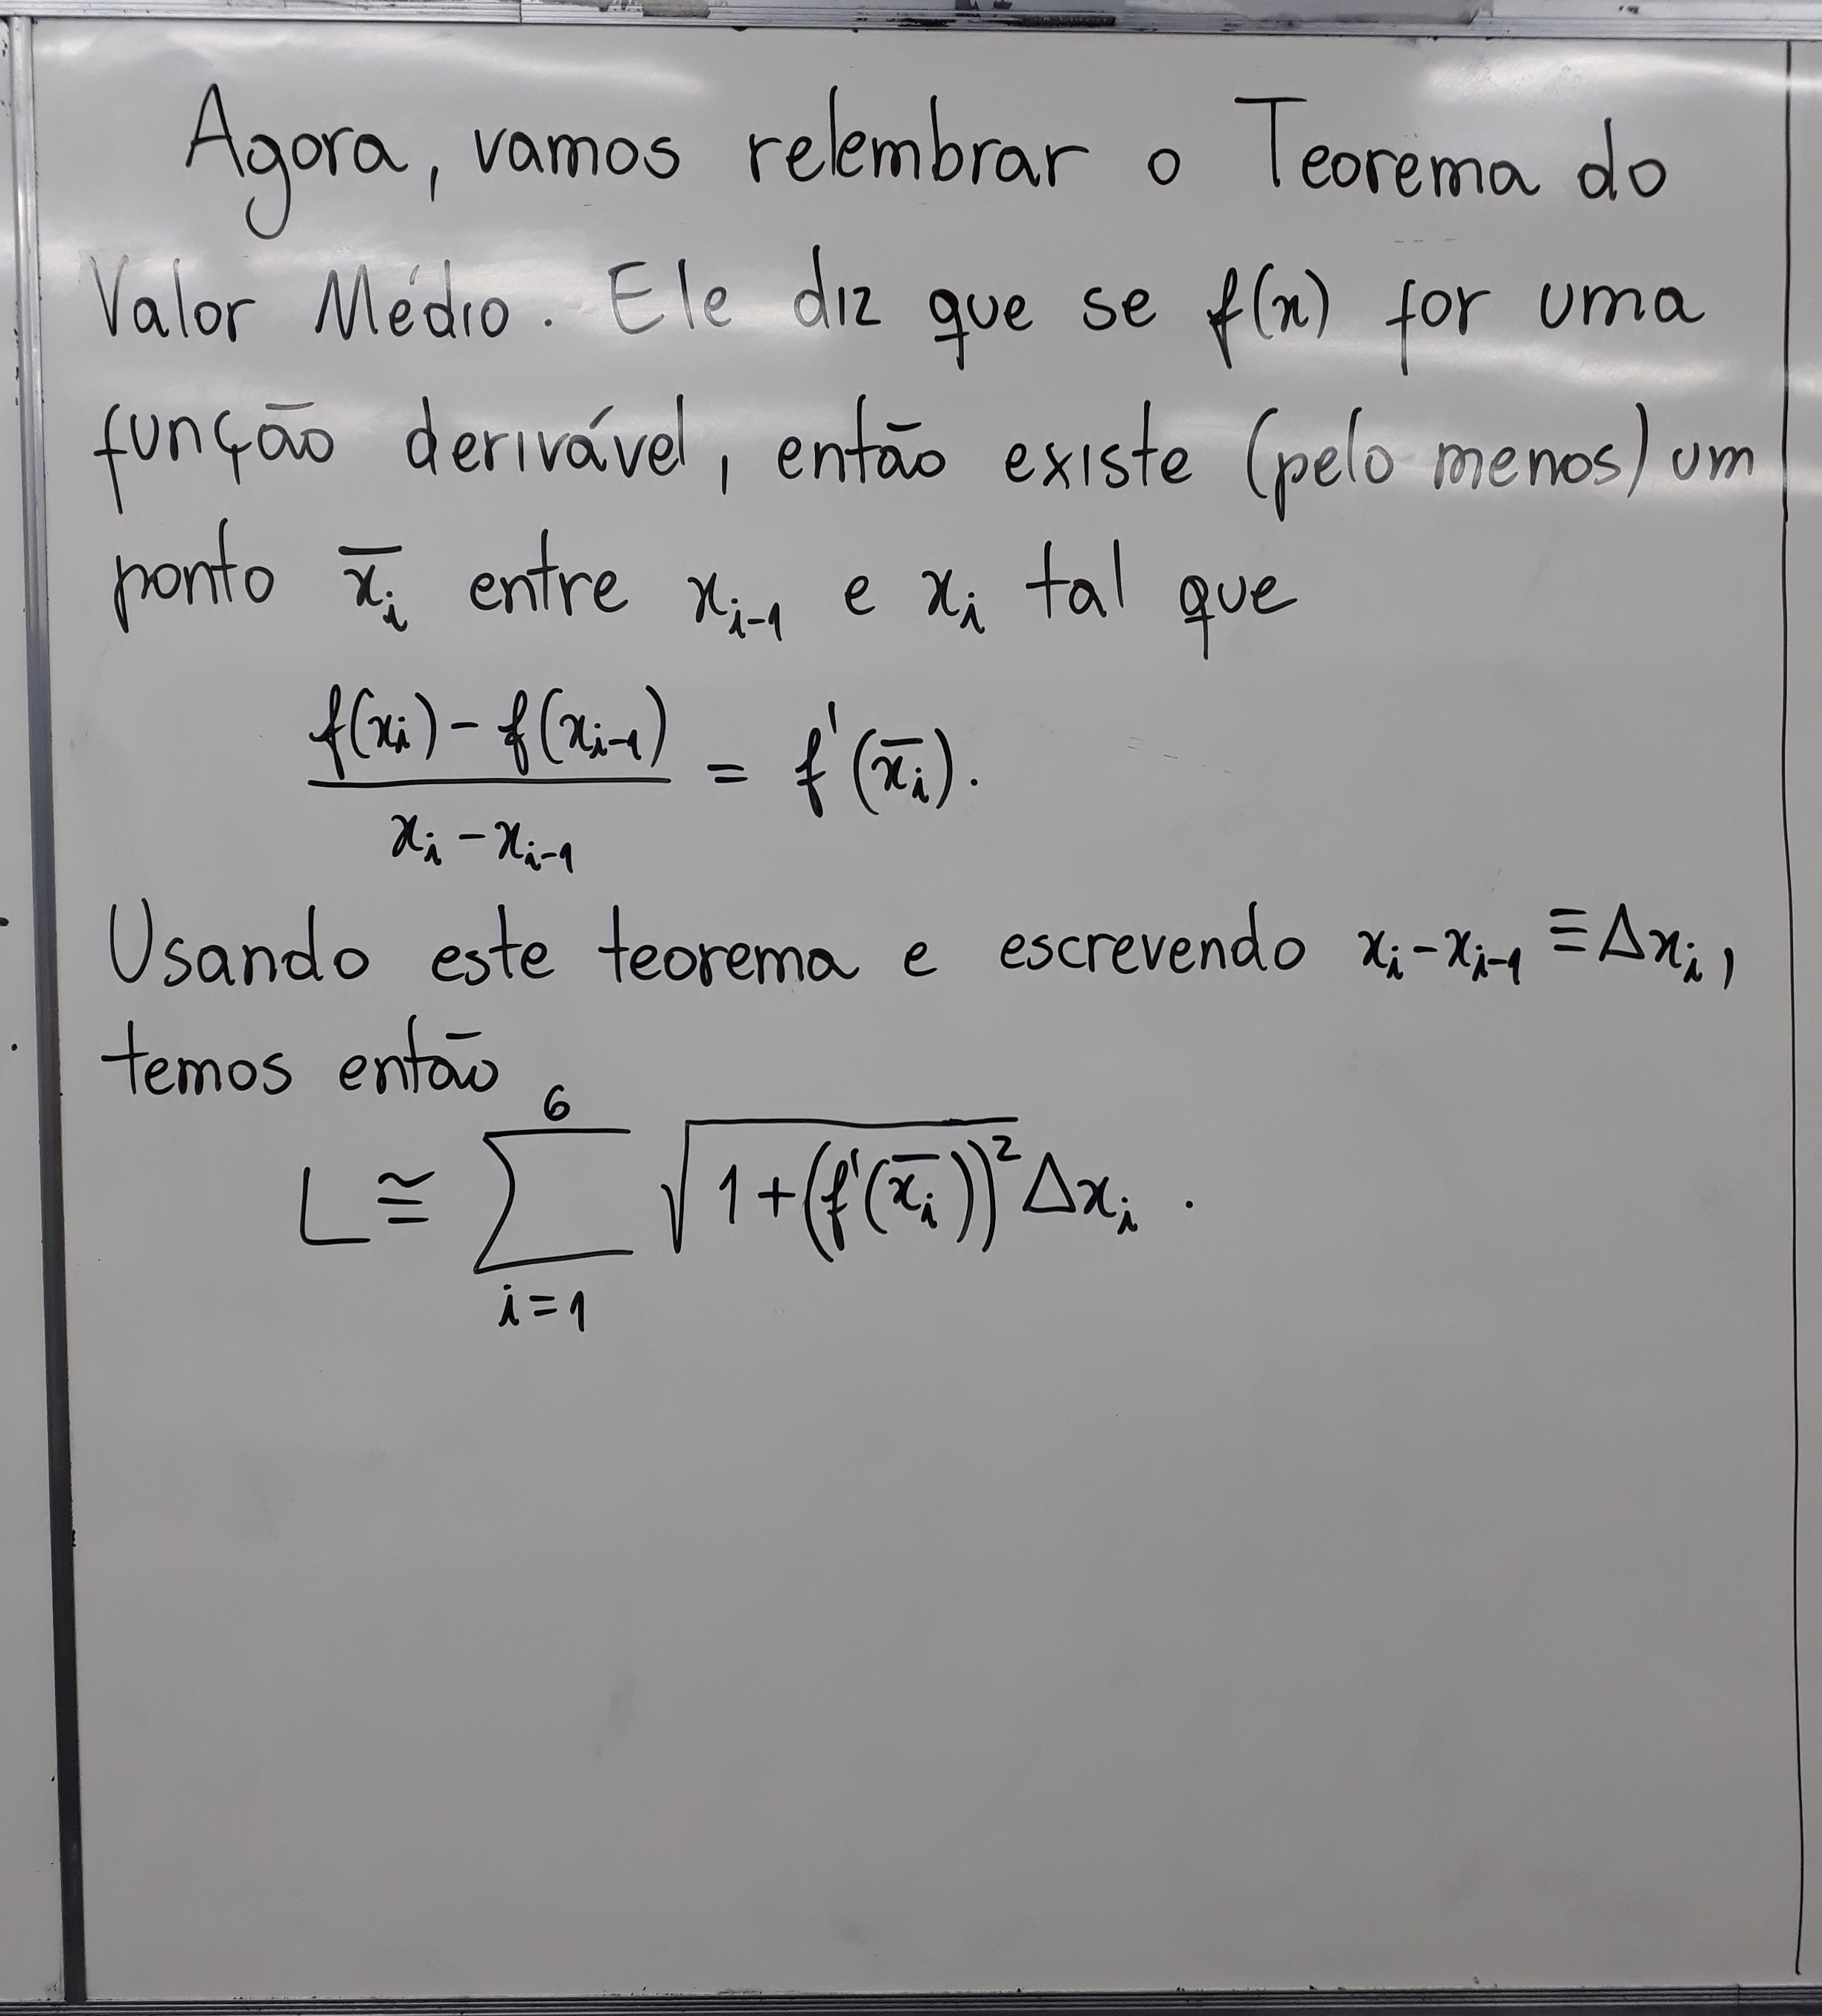 Agora, vamos relembrar o Teorema do
Valor Médio. Ele diz que se f(x) for uma
função derivável, então existe (pelo menos) um
ponto x̄ᵢ entre xᵢ₋₁ e xᵢ tal que
(f(xᵢ) - f(xᵢ₋₁)) / (xᵢ - xᵢ₋₁) = f'(x̄ᵢ).
Usando este teorema e escrevendo xᵢ - xᵢ₋₁ ≡ Δxᵢ,
temos então
L ≅ ∑_{i=1}^{6} √(1 + (f'(x̄ᵢ))²) Δxᵢ .